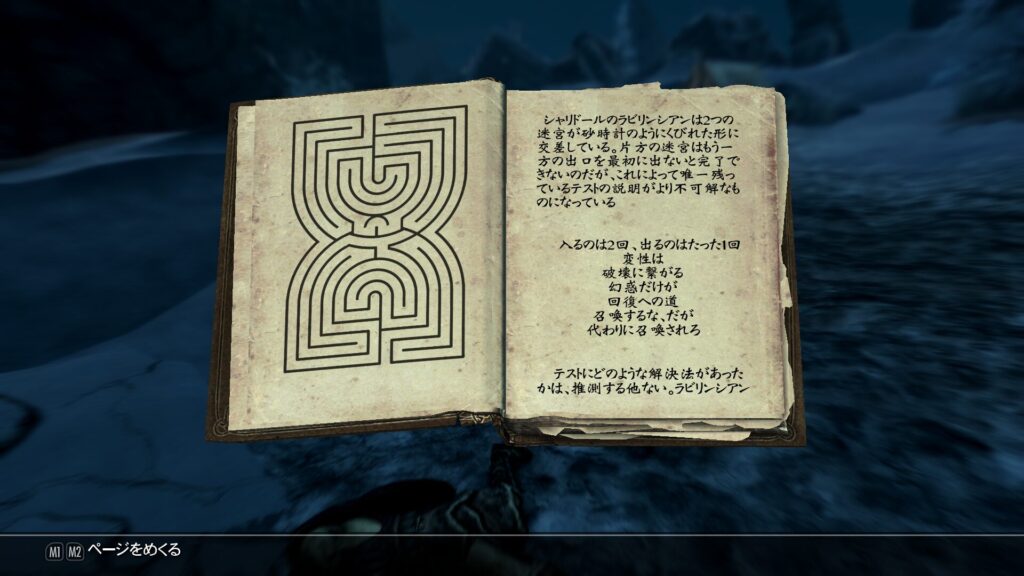 シャリドールのラビリンシアンは2つの
迷宮が砂時計のようにくびれた形に
交差している。片方の迷宮はもう一
方の出口を最初に出ないと完了で
きないのだが、これによって唯一残っ
ているテストの説明がより不可解なも
のになっている
入るのは2回、出るのはたった1回
変性は
破壊に繋がる
幻惑だけが
回復への道
召喚するな、だが
代わりに召喚されろ
テストにどのような解決法があった
かは、推測する他ない。ラビリンシアン
M1 M2 ページをめくる